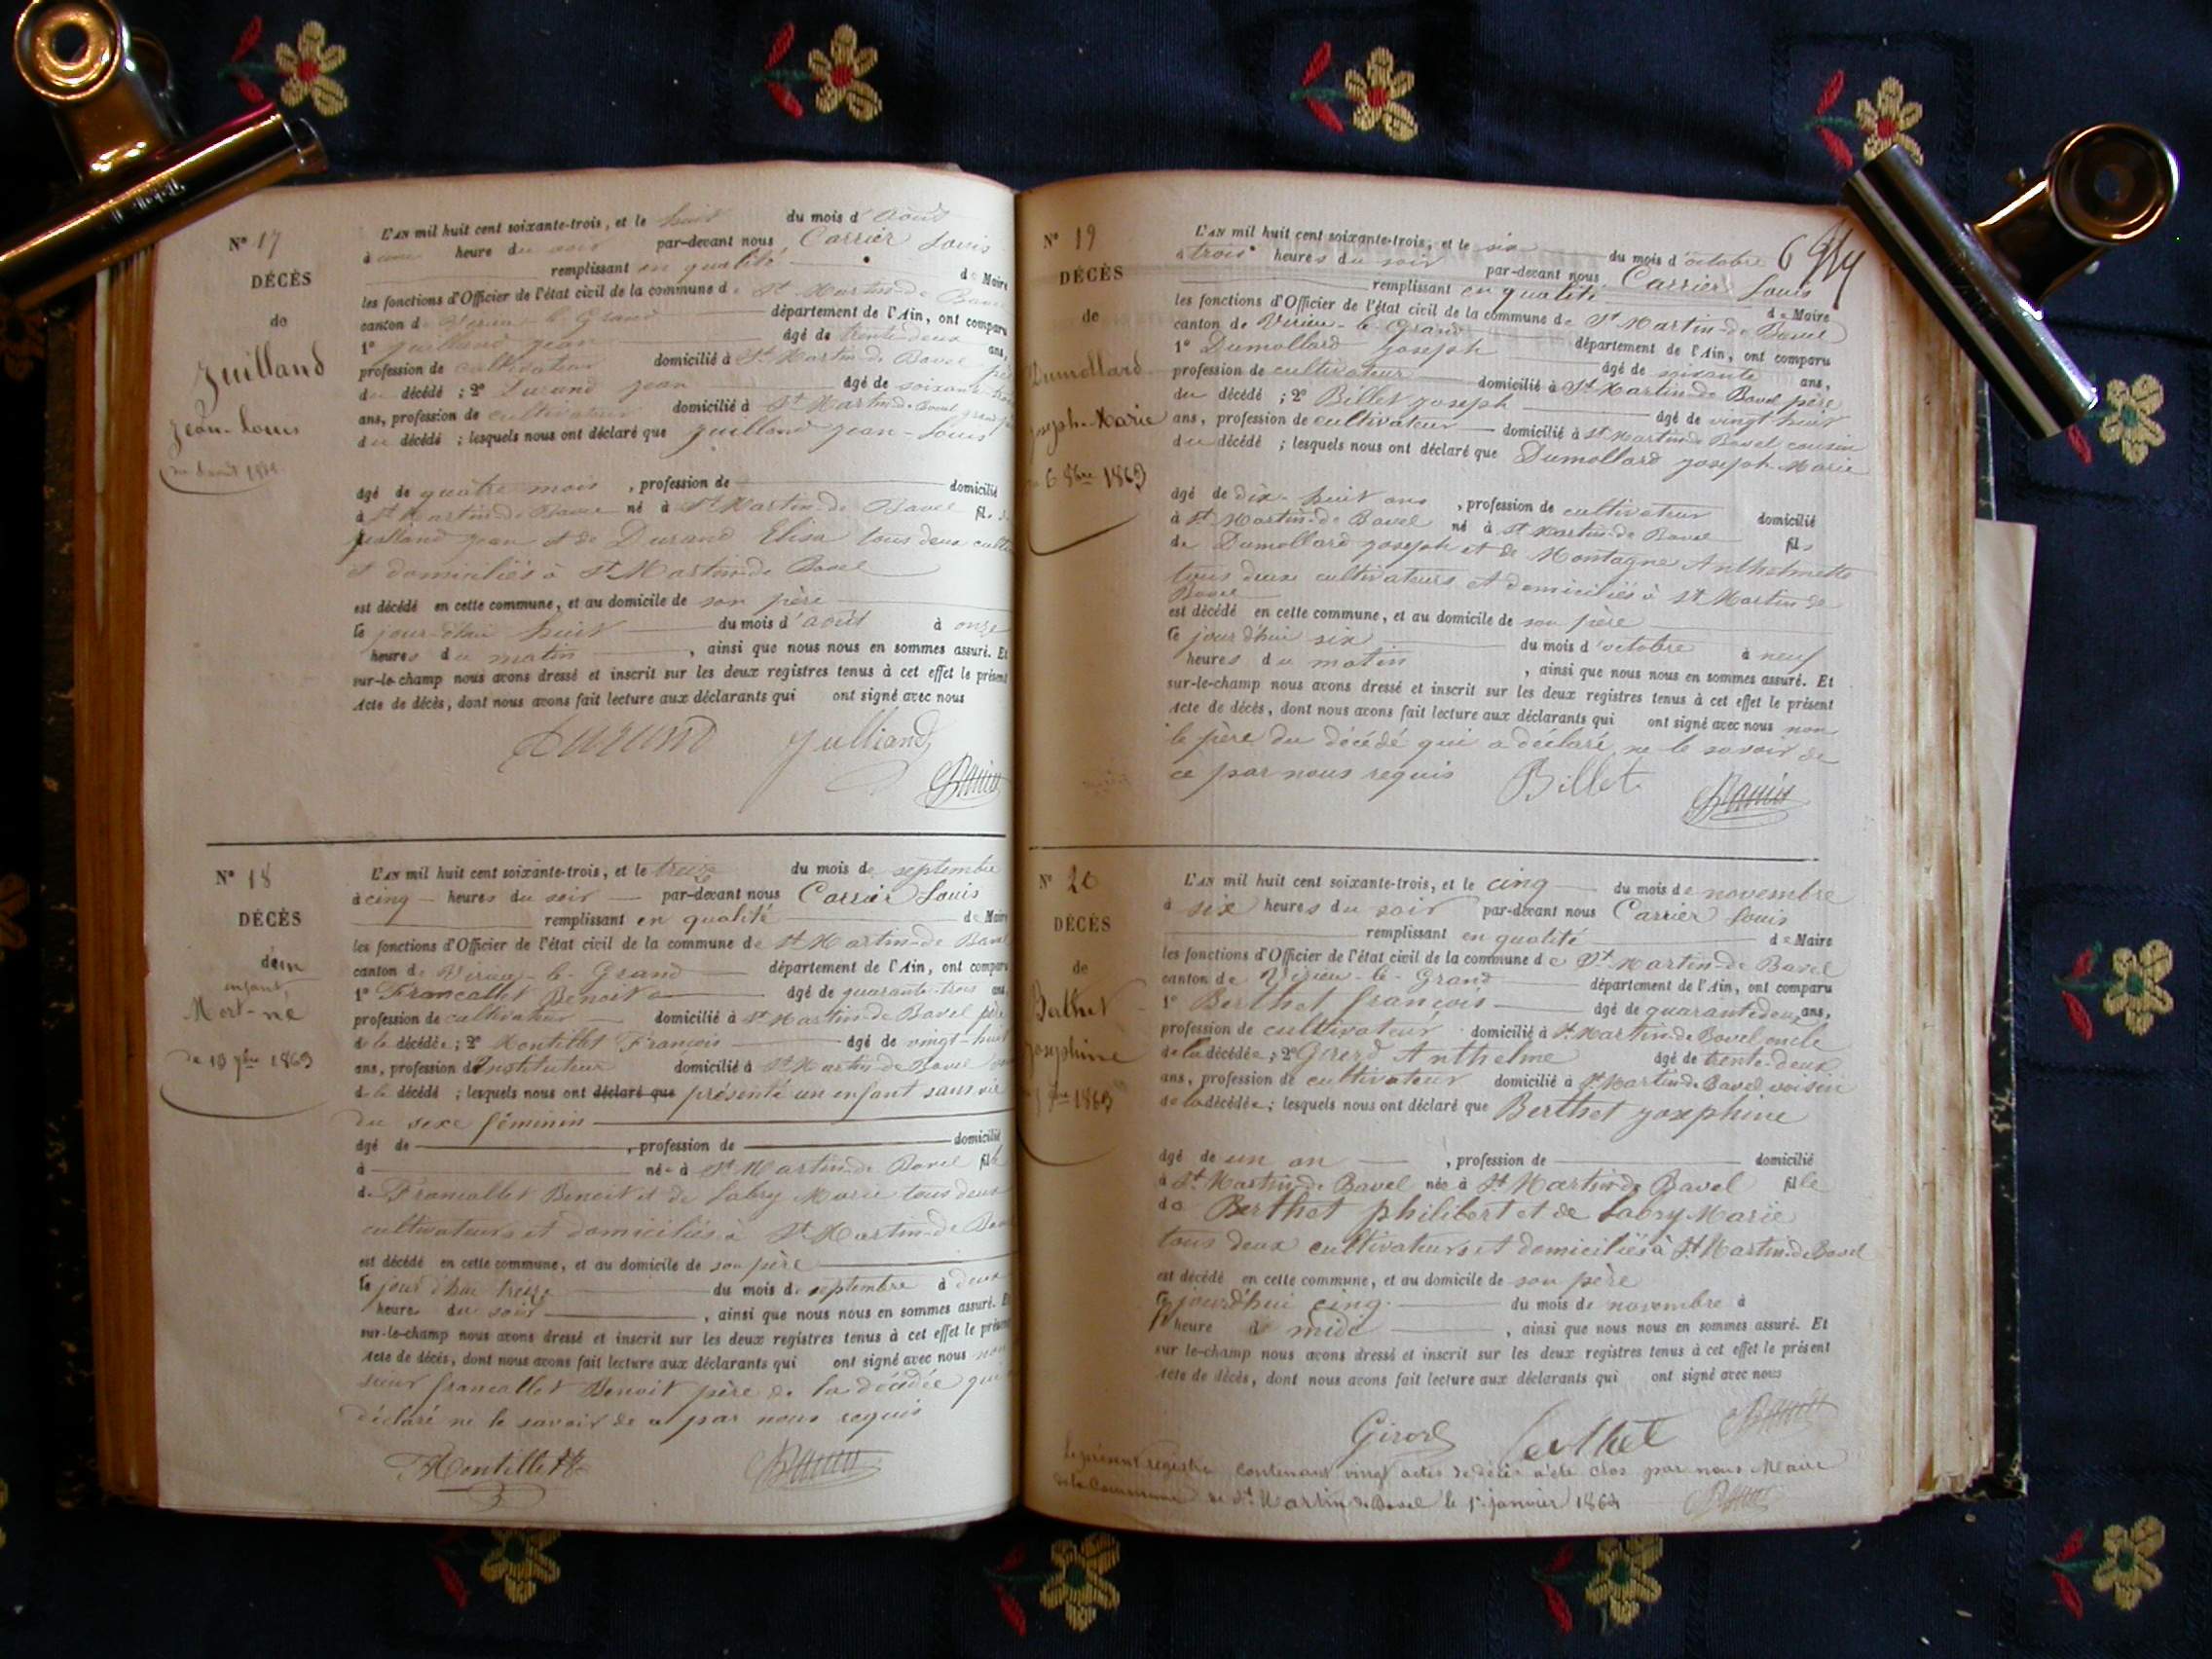 N° 17
DÉCÈS
de
Juilland
Jean-Louis
L'AN mil huit cent soixante-trois, et le huit du mois d'août
à une heure du soir par-devant nous Carrier Louis
remplissant en qualité de Maire
les fonctions d'Officier de l'état civil de la commune de St Martin-de Bavel
canton de Virieu-le-Grand département de l'Ain, ont comparu
1° Juilland Jean âgé de trente-deux ans,
profession de cultivateur domicilié à St Martin-de Bavel père
du décédé ; 2° Durand Jean âgé de soixante-trois
ans, profession de cultivateur domicilié à St Martin-de Bavel grand père
du décédé ; lesquels nous ont déclaré que Juilland Jean-Louis
âgé de quatre mois , profession de domicilié
à St Martin-de Bavel né à St Martin-de Bavel fils de
Juilland Jean et de Durand Elisa tous deux
et domiciliés à St Martin-de Bavel
est décédé en cette commune, et au domicile de son père
le jourd'hui huit du mois d'août à onze
heures du matin , ainsi que nous nous en sommes assuré. Et
sur-le-champ nous avons dressé et inscrit sur les deux registres tenus à cet effet le présent
Acte de décès, dont nous avons fait lecture aux déclarants qui ont signé avec nous
Durand Julliand
N° 18
DÉCÈS
d'un
enfant
Mort-né
du 13 7bre 1863
L'AN mil huit cent soixante-trois, et le treize du mois de septembre
à cinq heures du soir par-devant nous Carrier Louis
remplissant en qualité de Maire
les fonctions d'Officier de l'état civil de la commune de St Martin-de Bavel
canton de Virieu-le-Grand département de l'Ain, ont comparu
1° Francallet Benoit âgé de quarante-trois ans,
profession de cultivateur domicilié à St Martin-de Bavel père
de la décédée ; 2° Montillet François âgé de vingt-huit
ans, profession d'Instituteur domicilié à St Martin-de Bavel
de la décédé ; lesquels nous ont déclaré que présenté un enfant sans vie
du sexe féminin
âgé de , profession de domicilié
à née à St Martin-de Bavel fille
de Francallet Benoit et de Labry Marie tous deux
cultivateurs et domiciliés à St Martin-de Bavel
est décédé en cette commune, et au domicile de son père
le jourd'hui treize du mois de septembre à deux
heures du soir , ainsi que nous nous en sommes assuré. Et
sur-le-champ nous avons dressé et inscrit sur les deux registres tenus à cet effet le présent
Acte de décès, dont nous avons fait lecture aux déclarants qui ont signé avec nous non
sieur francallet Benoit père de la décédée qui
déclaré ne le savoir de ce par nous requis
Montillet
N° 19
DÉCÈS
de
Dumollard
Joseph-Marie
6 8bre 1863
6
L'AN mil huit cent soixante-trois, et le six du mois d'octobre
à trois heures du soir par-devant nous Carrier Louis
remplissant en qualité de Maire
les fonctions d'Officier de l'état civil de la commune de St Martin-de Bavel
canton de Virieu-le-Grand département de l'Ain, ont comparu
1° Dumollard Joseph âgé de soixante ans,
profession de cultivateur domicilié à St Martin-de Bavel père
du décédé ; 2° Billet Joseph âgé de vingt huit
ans, profession de cultivateur domicilié à St Martin-de Bavel cousin
du décédé ; lesquels nous ont déclaré que Dumollard Joseph-Marie
âgé de dix-huit ans , profession de cultivateur domicilié
à St Martin-de Bavel né à St Martin-de Bavel fils
de Dumollard Joseph et de Montagne Anthelmette
tous deux cultivateurs et domiciliés à St Martin-de
Bavel
est décédé en cette commune, et au domicile de son père
le jourd'hui six du mois d'octobre à neuf
heures du matin , ainsi que nous nous en sommes assuré. Et
sur-le-champ nous avons dressé et inscrit sur les deux registres tenus à cet effet le présent
Acte de décès, dont nous avons fait lecture aux déclarants qui ont signé avec nous non
le père du décédé qui a déclaré ne le savoir de
ce par nous requis Billet
N° 20
DÉCÈS
de
Berthet
Josephine
1863
L'AN mil huit cent soixante-trois, et le cinq du mois de novembre
à six heures du soir par-devant nous Carrier Louis
remplissant en qualité de Maire
les fonctions d'Officier de l'état civil de la commune de St Martin-de Bavel
canton de Virieu-le-Grand département de l'Ain, ont comparu
1° Berthet françois âgé de quarante deux ans,
profession de cultivateur domicilié à St Martin-de Bavel oncle
de la décédée ; 2° Girerd Anthelme âgé de trente-deux
ans, profession de cultivateur domicilié à St Martin-de Bavel voisin
de la décédée ; lesquels nous ont déclaré que Berthet Josephine
âgé de un an , profession de domicilié
à St Martin-de Bavel née à St Martin-de Bavel fille
de Berthet philibert et de Labry Marie
tous deux cultivateurs et domiciliés à St Martin-de Bavel
est décédé en cette commune, et au domicile de son père
le jourd'hui cinq du mois de novembre à
heure de midi , ainsi que nous nous en sommes assuré. Et
sur le-champ nous avons dressé et inscrit sur les deux registres tenus à cet effet le présent
Acte de décès, dont nous avons fait lecture aux déclarants qui ont signé avec nous
Girerd Berthet
Le présent registre contenant vingt actes de décès a été clos par nous Maire
de la Commune de St Martin de Bavel le 1r janvier 1864